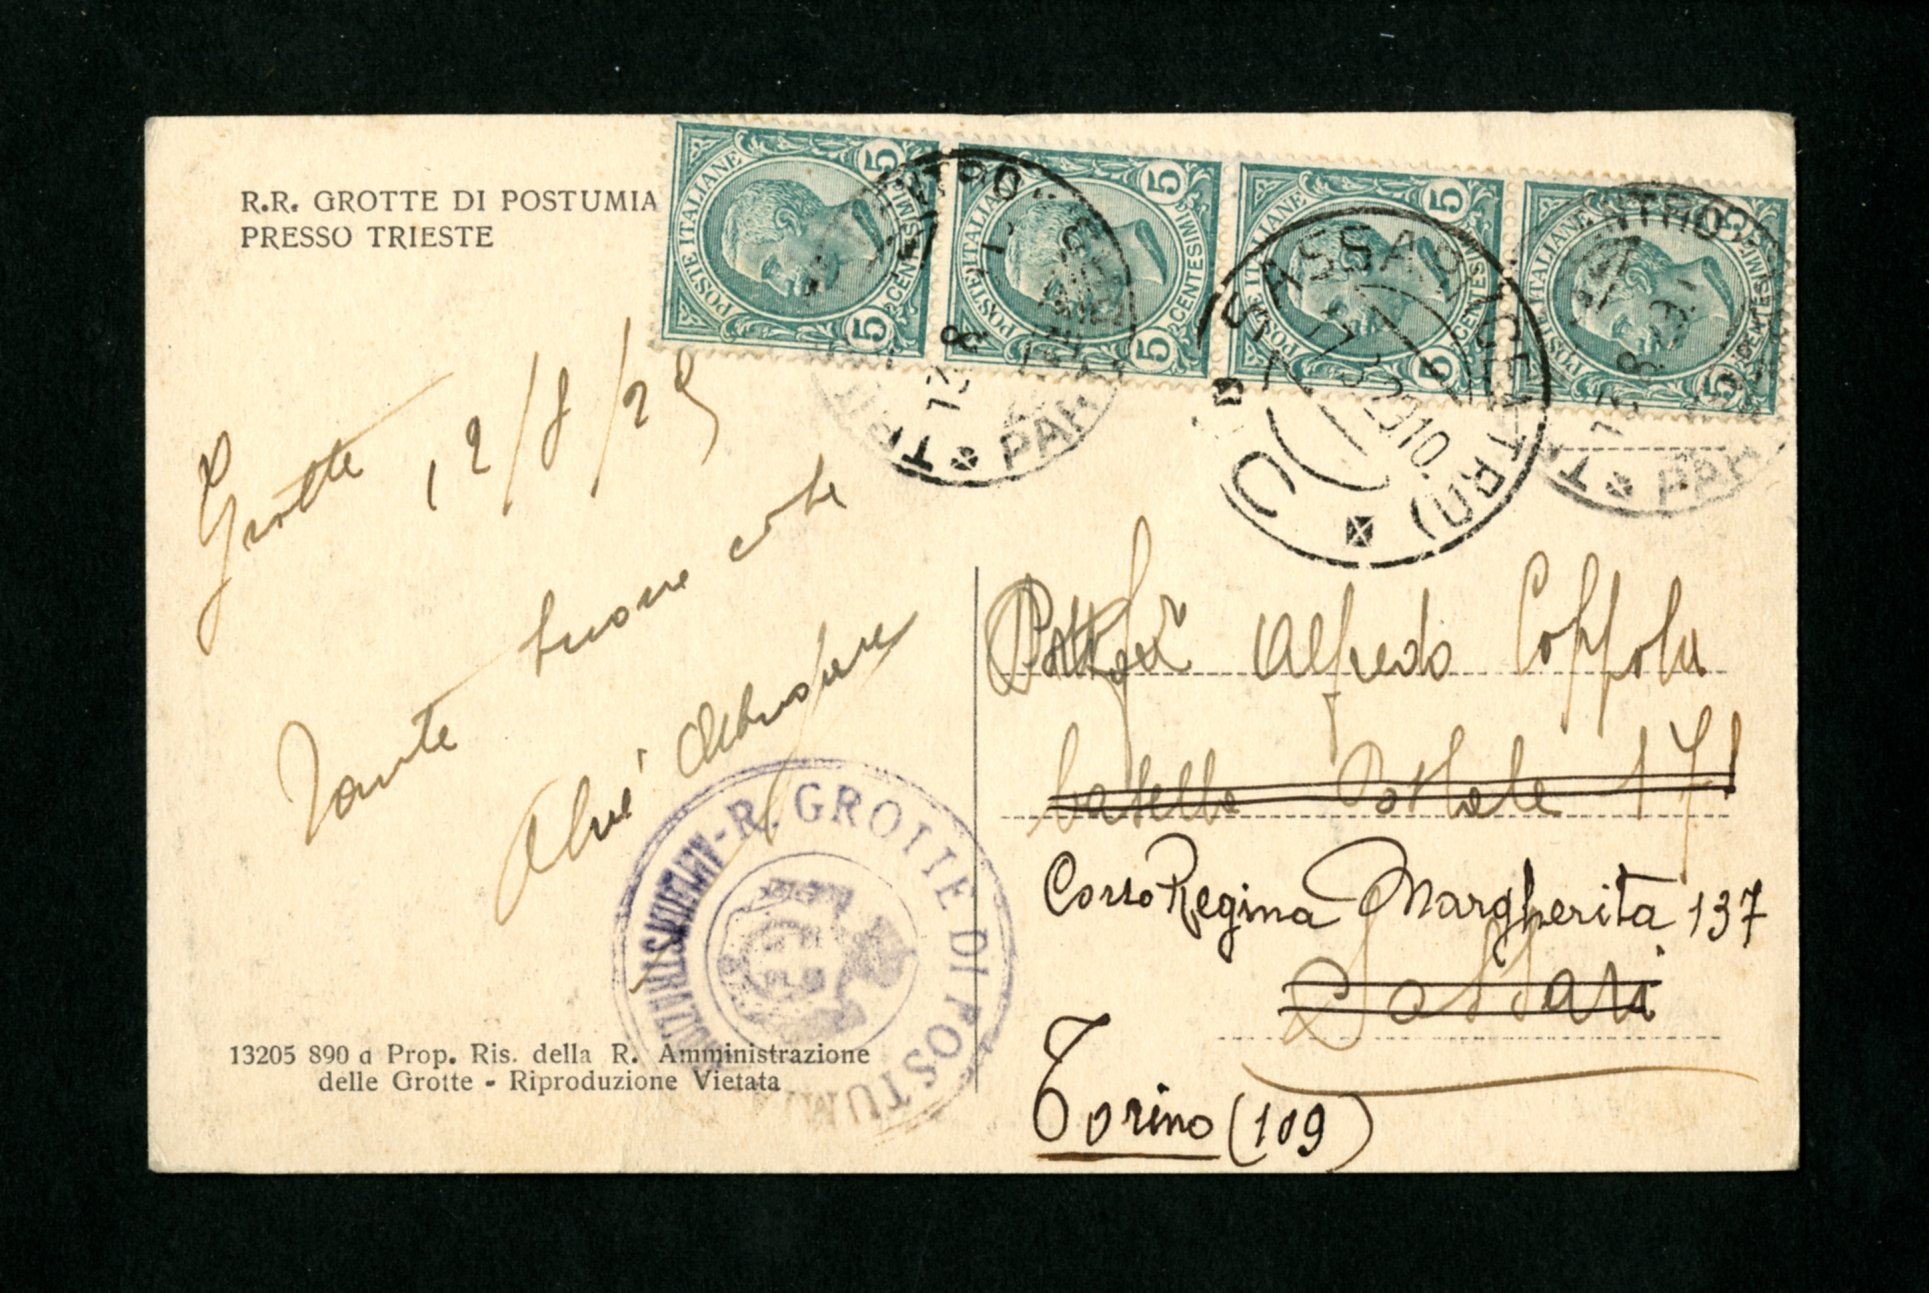 R.R. GROTTE DI POSTUMIA
PRESSO TRIESTE
POSTE ITALIANE 5 CENTESIMI 5
POSTE ITALIANE 5 CENTESIMI 5
POSTE ITALIANE 5 CENTESIMI 5
POSTE ITALIANE 5 CENTESIMI 5
SASSARI CENTRO
Grotte, 12/8/29
Tante buone cose
Alfredo Coppola
Casella Postale 17
Corso Regina Margherita 137
Sassari
Torino (109)
AMMINISTRAZIONE - R. GROTTE DI POSTUMIA
13205 890 a Prop. Ris. della R. Amministrazione
delle Grotte - Riproduzione Vietata